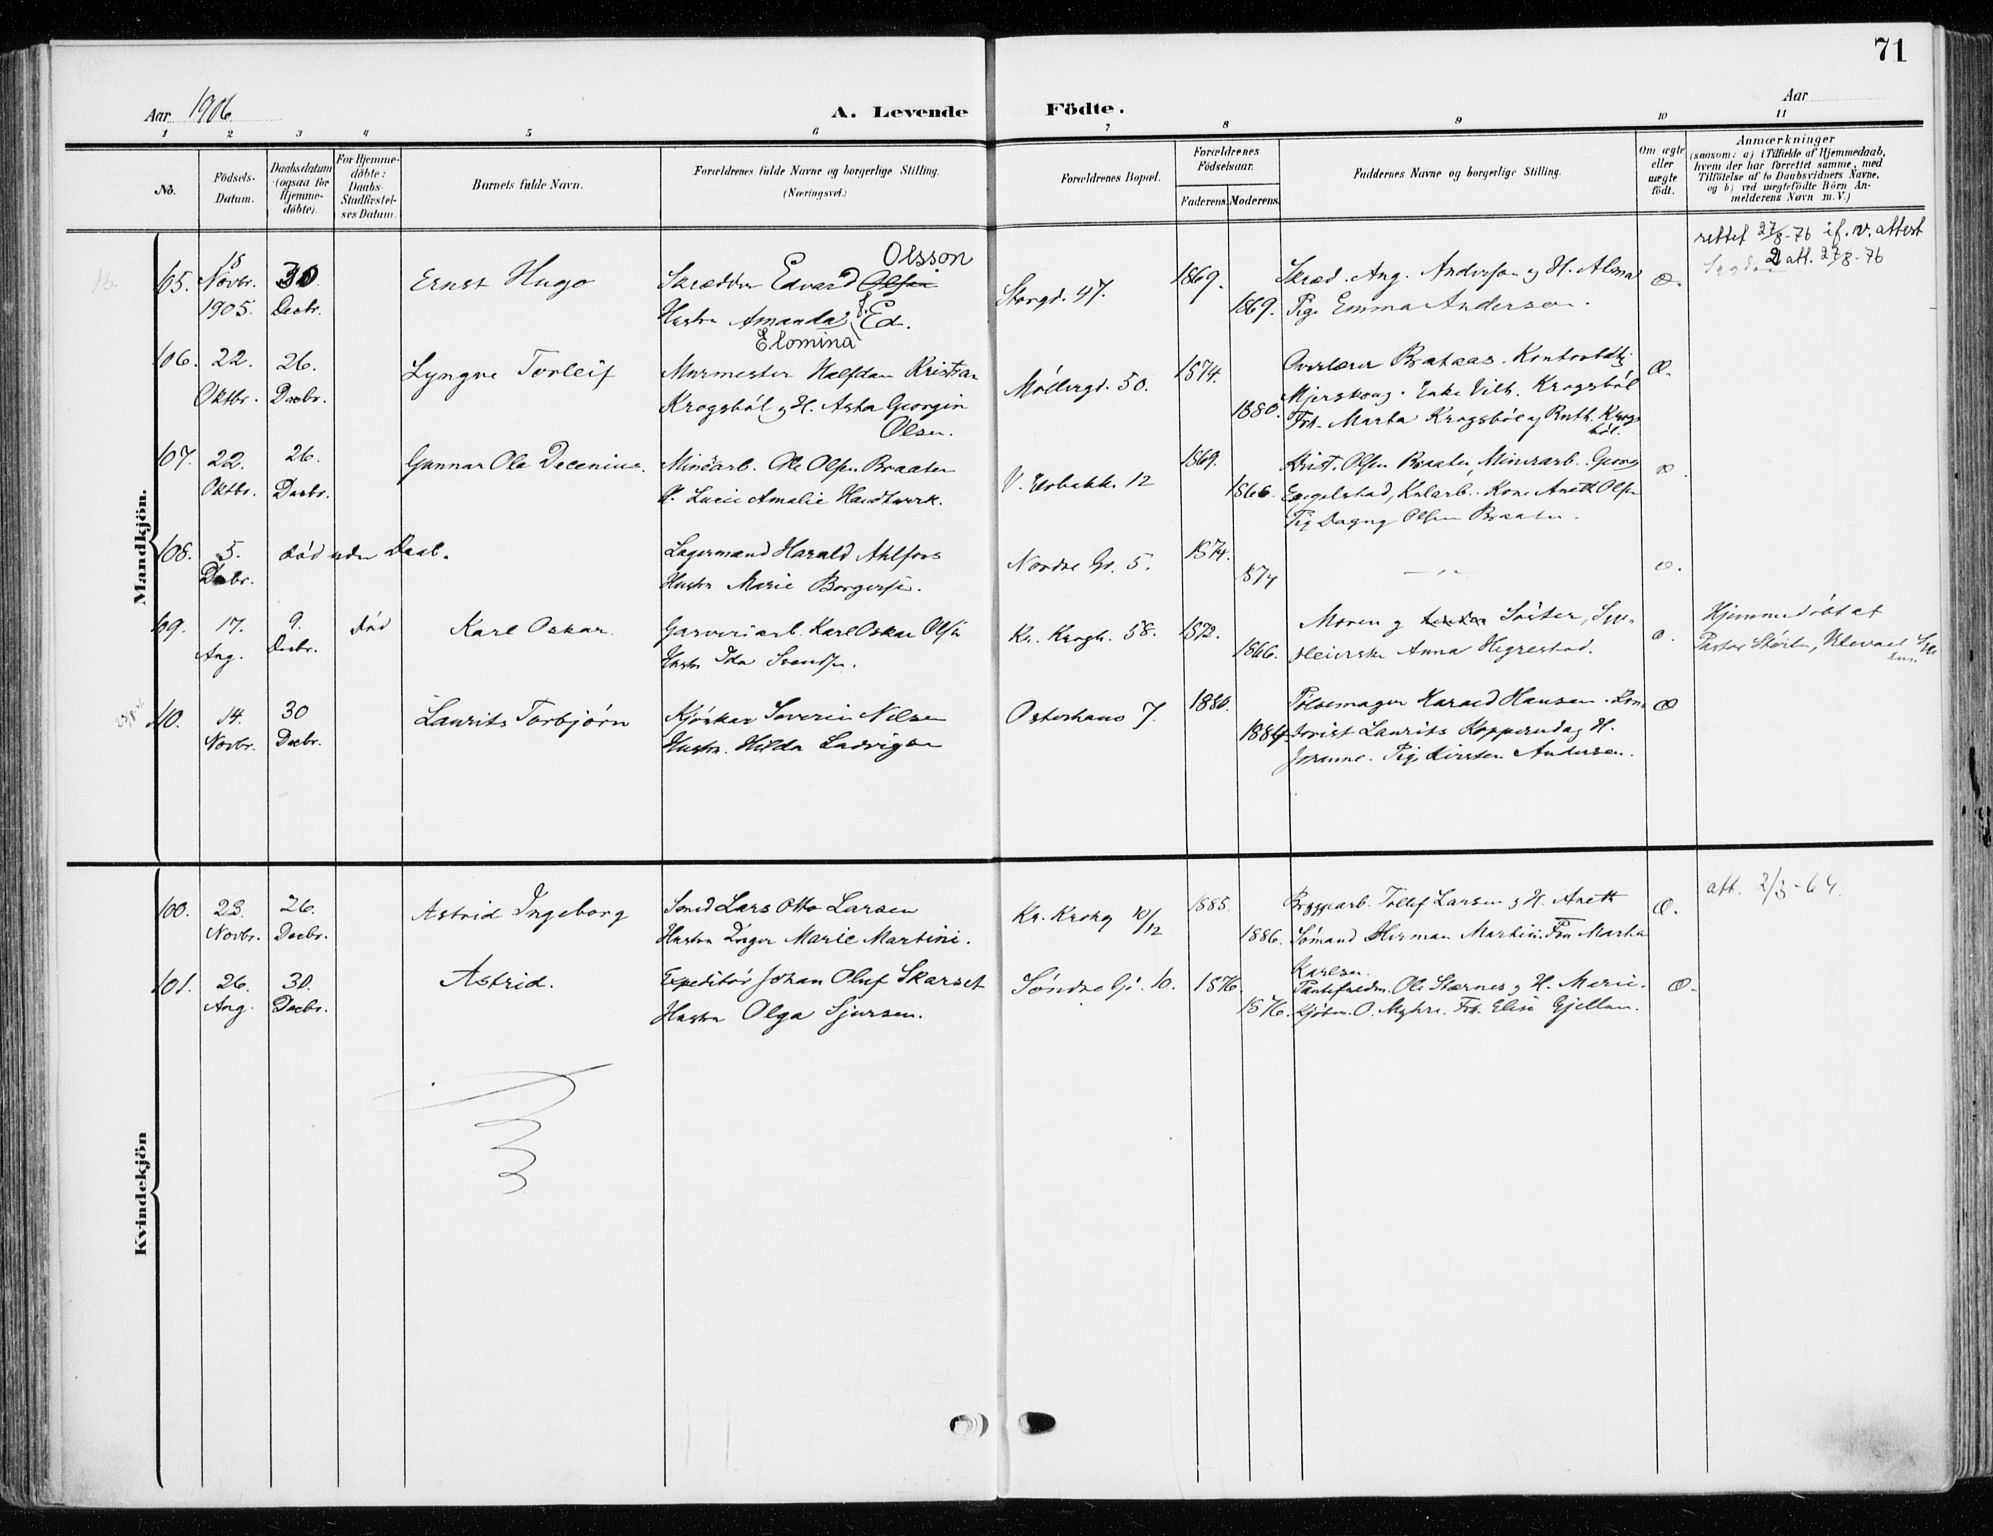 71
Aar 1906
A. Levende Födte.
Aar
1 2 3 4 5 6 7 8 9 10 11
No.
Födsels-Datum.
Daabsdatum (ogsaa for Hjemme-döbte).
For Hjemme-döbte: Daabs-Stadfæstel-ses Datum.
Barnets fulde Navn.
Forældrenes fulde Navne og borgerlige Stilling. (Næringsvei.)
Forældrenes Bopæl.
Forældrenes Födselsaar.
Faderens. Moderens.
Faddernes Navne og borgerlige Stilling.
Om ægte eller uægte födt.
Anmærkninger
(saasom: a) i Tilfælde af Hjemmedaab,
hvem der har forrettet samme, med
Tilföielse af to Daabsvidners Navne,
og b) ved uægtefödte Börn An-
melderens Navn m. V.)
Mandkjön.
105. 18 Novbr. 1905. 30 Decbr.
Ernst Hugo
Olsson
Skrædder Edvard Olsen
Hustru Amanda f. Ed.
Elomina
Storgd. 47.
1869. 1869.
Skræd. Aug. Andersen og H. Alma
Pige Emma Andersen.
Æ.
rettet 27/8-76 if. v. attest
att. 27/8-76
106. 22. Oktbr. 26. Decbr.
Lyngve Torleif
Murmester Halfdan Kristian
Krogsböl og H. Asta Georgin
Olsen.
Møllergd. 50.
1874. 1880.
Overlærer Brataas. Kontorbtj.
Mjerskoug. Enke Vilh. Krogsböl
Frk. Marta Krogsböl og Ruth Krogs
böl.
Æ.
107. 22. Oktbr. 26. Decbr.
Gunnar Ole Decenius.
Minerarb. Ole Olsen Braaten
H. Lucie Amalie Handtwerk.
12
1869. 1866.
Krist. Olsen Braaten, Minerarb. Georg
Engelstad, Kularb. Kone Anette Olsen
Pig Dagny Olsen Braaten.
Æ.
108. 5. Decbr. död uden Daab.
Lagermand Harald Ahlfors
Hustru Marie Borgersen.
Nordre Gd. 5.
1874. 1874
— „ —
Æ.
109. 17. Aug. 9. Decbr. död
Karl Oskar.
Garveriarb. Karl Oskar Olsen
Hustru Ida Svendsen.
Kr. Krogh. 58.
1872. 1866.
Moren og Söster, Sy-
pleierske Anna Hegrestad.
Hjemmedöbt at
Pastor Stören, Ulevaal Syge
hus.
110. 14. Novbr. 30 Decbr.
Laurits Torbjørn
Kjörskar Severin Nilsen
Hustru. Hilda Ludvigsen
Osterhaus 7.
1880. 1884.
Pølsemager Harald Hansen. Kon-
torist Laurits Koppernd og H.
Johanne. Pige Kirsten Andersen.
Æ
Kvindekjön
100. 23. Novbr. 26. Decbr.
Astrid Ingeborg
Smed Lars Otto Larsen
Hustru Inger Marie Martini.
Kr. Krohg 10/12
1885. 1886.
Bryggearb. Tollef Larsen og H. Anette
Sømand Herman Martini. Fru Marta
Karlsen.
Æ.
att. 2/3-64.
101. 26. Aug. 30. Decbr.
Astrid.
Expeditör Johan Oluf Skarset
Hustru Olga Sjursen.
Søndre Gd. 10.
1876. 1876.
Ole Stærnes og H. Marie.
Kjöbm. O. Myhre. Frk. Elise Gjellan.
Æ.